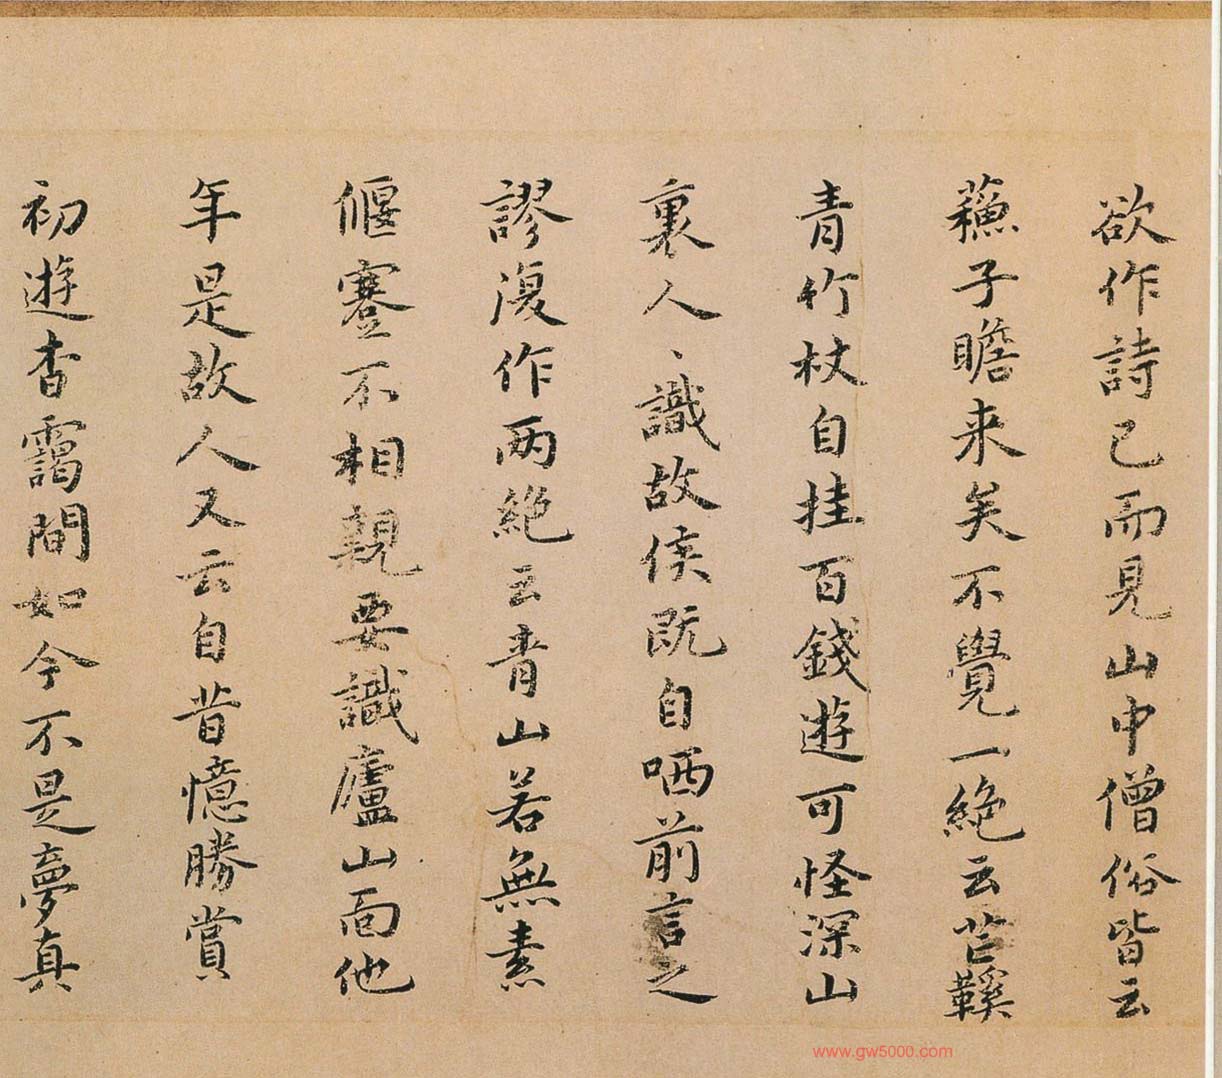 欲作詩已而見山中僧俗皆云
蘓子瞻来矣不覺一絶云芒鞵
青竹杖自挂百錢遊可怪深山
裏人、識故侯既自哂前言之
謬復作两絶云青山若無素
偃蹇不相親要識廬山面他
年是故人又云自昔憶勝賞
初遊杳靄間如今不是夢真
www.gw5000.com